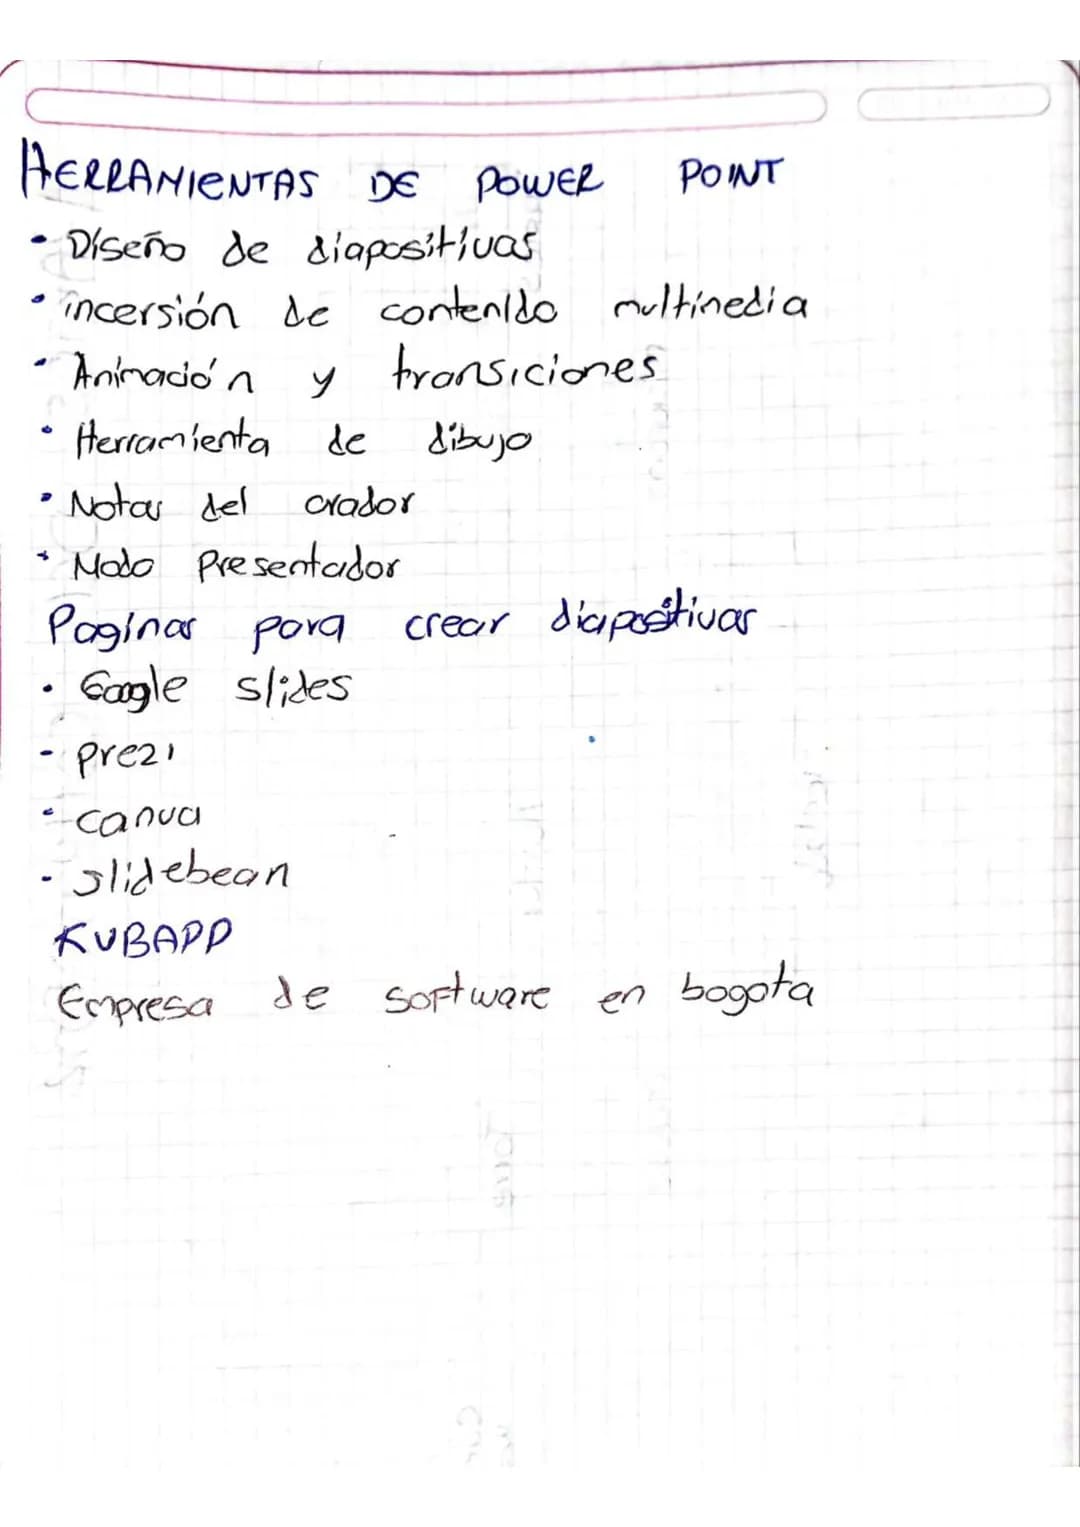 HERRAMIENTAS DE POWER POINT
• Diseño de diapositivas
• incersión de contenido multimedia
• Animación y transiciones
• Herramienta de dibujo
• Notas del orador
• Modo Presentador
Paginas para crear diapositivas
• Google slides
- prezi
• canva
- slidebean
KUBAPP
Empresa de software en bogota